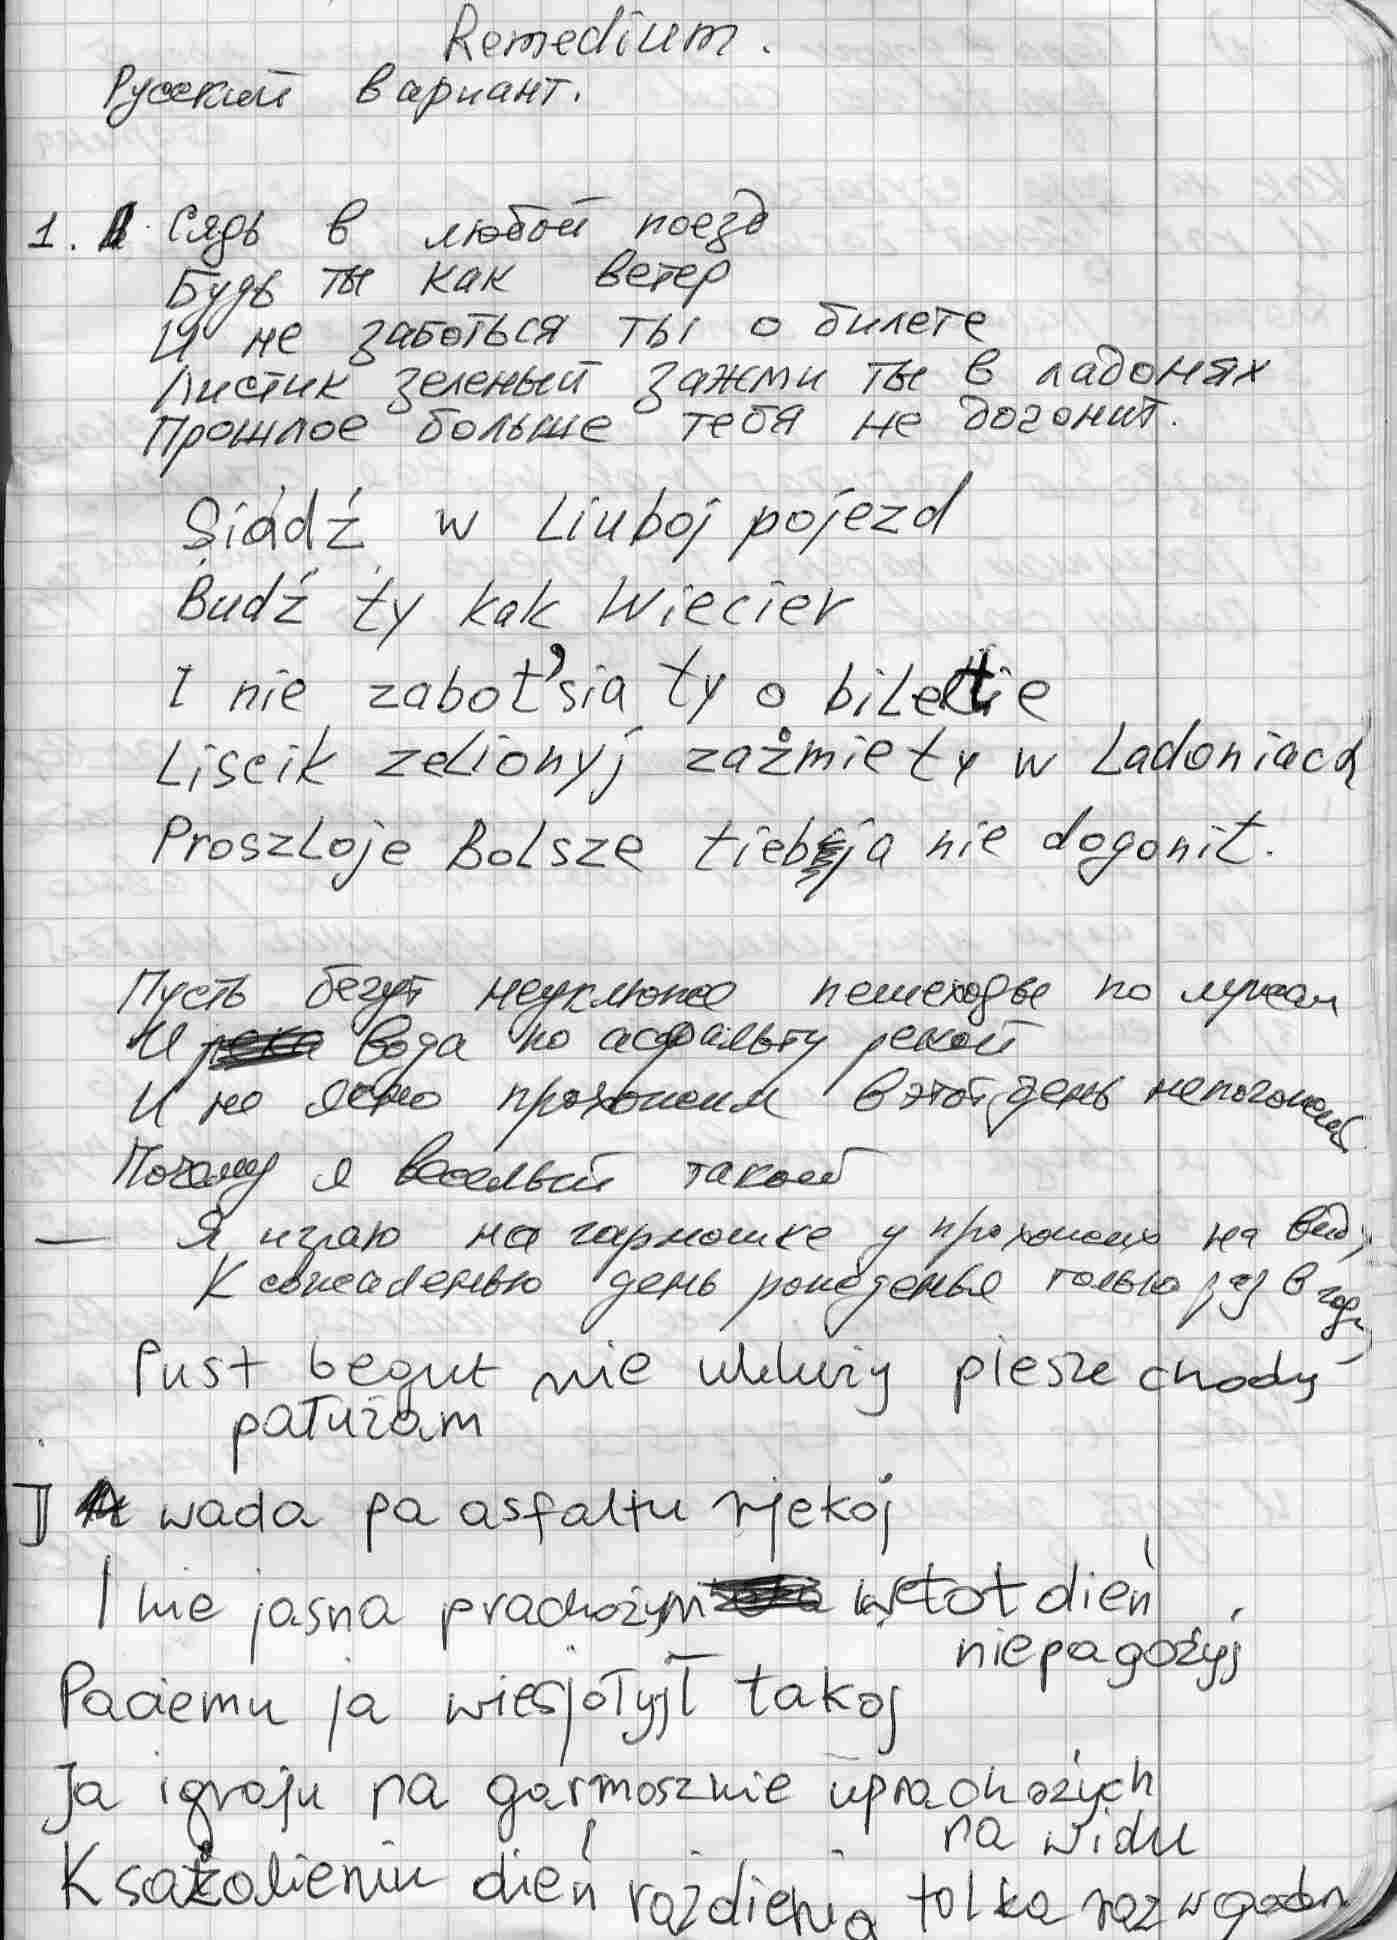 Remedium.
Русский вариант.
1. Сядь в любой поезд
Будь ты как ветер
И не заботься ты о билете
Листик зеленый зажми ты в ладонях
Прошлое больше тебя не догонит.
Siádź w Liuboj pojezd
Budź ty kak Wiecier
I nie zabot'sia ty o biletie
Liscik zelionyj zażmiety w Ladoniach
Proszloje Bolsze tiebja nie dogonit.
Пусть бегут неуклюже пешеходы по лужам
И вода по асфальту рекой
И не ясно прохожим в этот день непогожий
Почему я веселый такой
— Я играю на гармошке у прохожих на виду
К сожаленью день рожденья только раз в году
Pust begut nie ukluży piesze chody
pałużam
I wada pa asfaltu rjekoj
I nie jasna prachożym wetot dień
niepagożyj
Paciemu ja wiesjołyj takoj
Ja igraju na garmoszkie uprachożych
na widu
K sażalieniu dień rażdienia tolka raz w